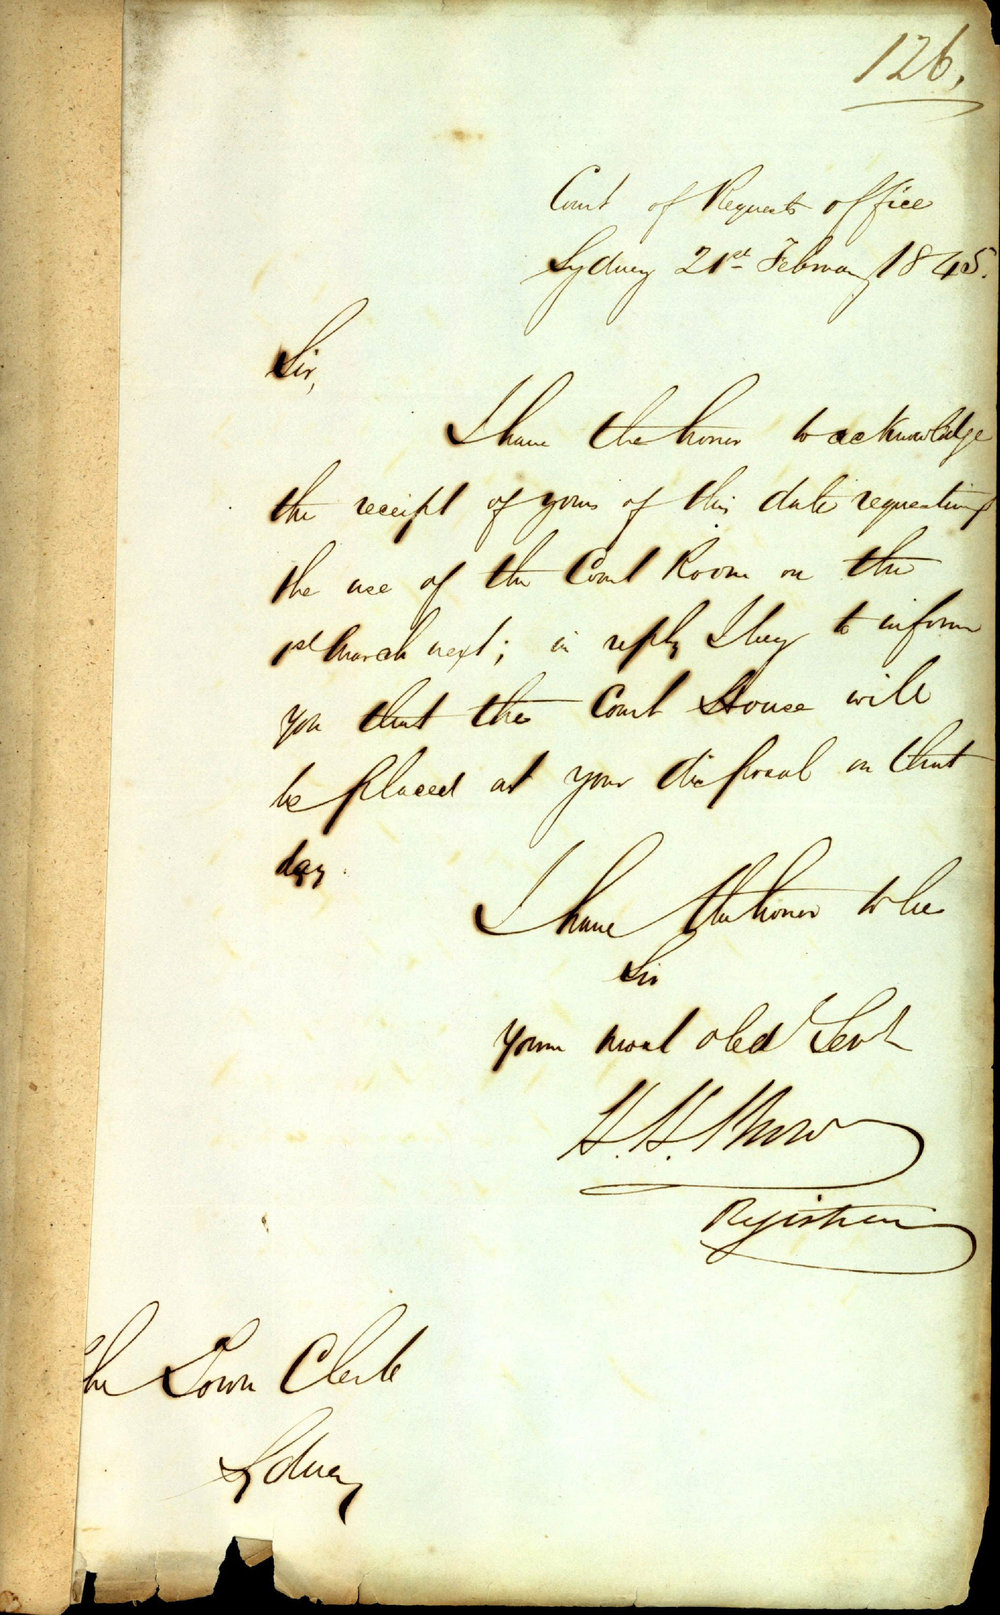 126.
Court of Requests office
Sydney 21st February 1845.
Sir,
I have the honor to acknowledge
the receipt of yours of this date requesting
the use of the Court Room on the
1st March next; in reply I beg to inform
you that the Court House will
be placed at your disposal on that
day.
I have the honor to be
Sir
Your most obedt Servt
H. H.
Registrar
The Town Clerk
Sydney